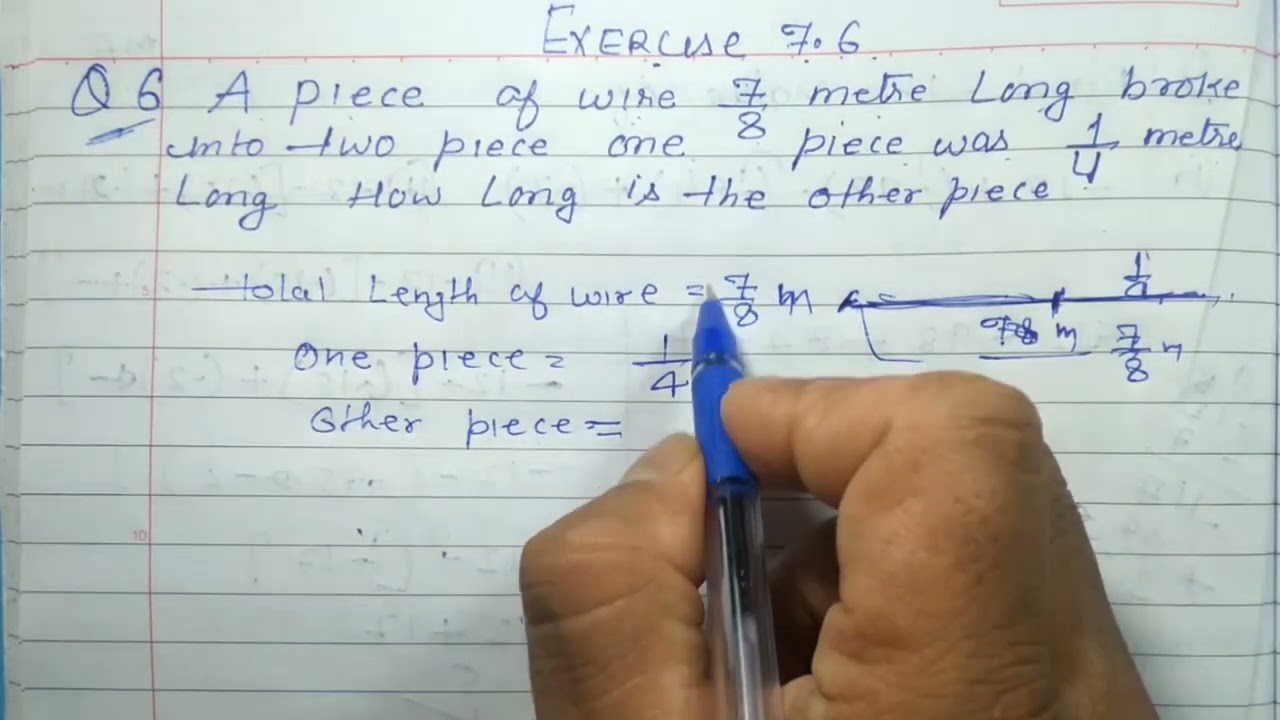 EXERCISE 7.6
Q 6 A piece of wire 7/8 metre Long broke
into two piece one piece was 1/4 metre
Long How Long is the other piece
Total Length of wire = 7/8 m
One piece = 1/4
Other piece =
7/8 m